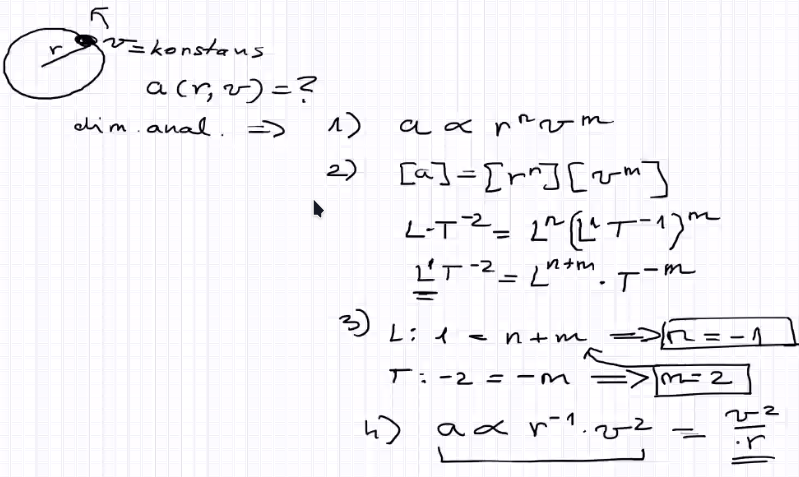 r v = konstans
a (r, v) = ?
dim. anal. => 1) a ∝ rⁿ vᵐ
2) [a] = [rⁿ] [vᵐ]
L·T⁻² = Lⁿ (L¹ T⁻¹)ᵐ
L¹ T⁻² = Lⁿ⁺ᵐ · T⁻ᵐ
3) L: 1 = n + m => n = -1
T: -2 = -m => m = 2
4) a ∝ r⁻¹ · v² = v²/·r